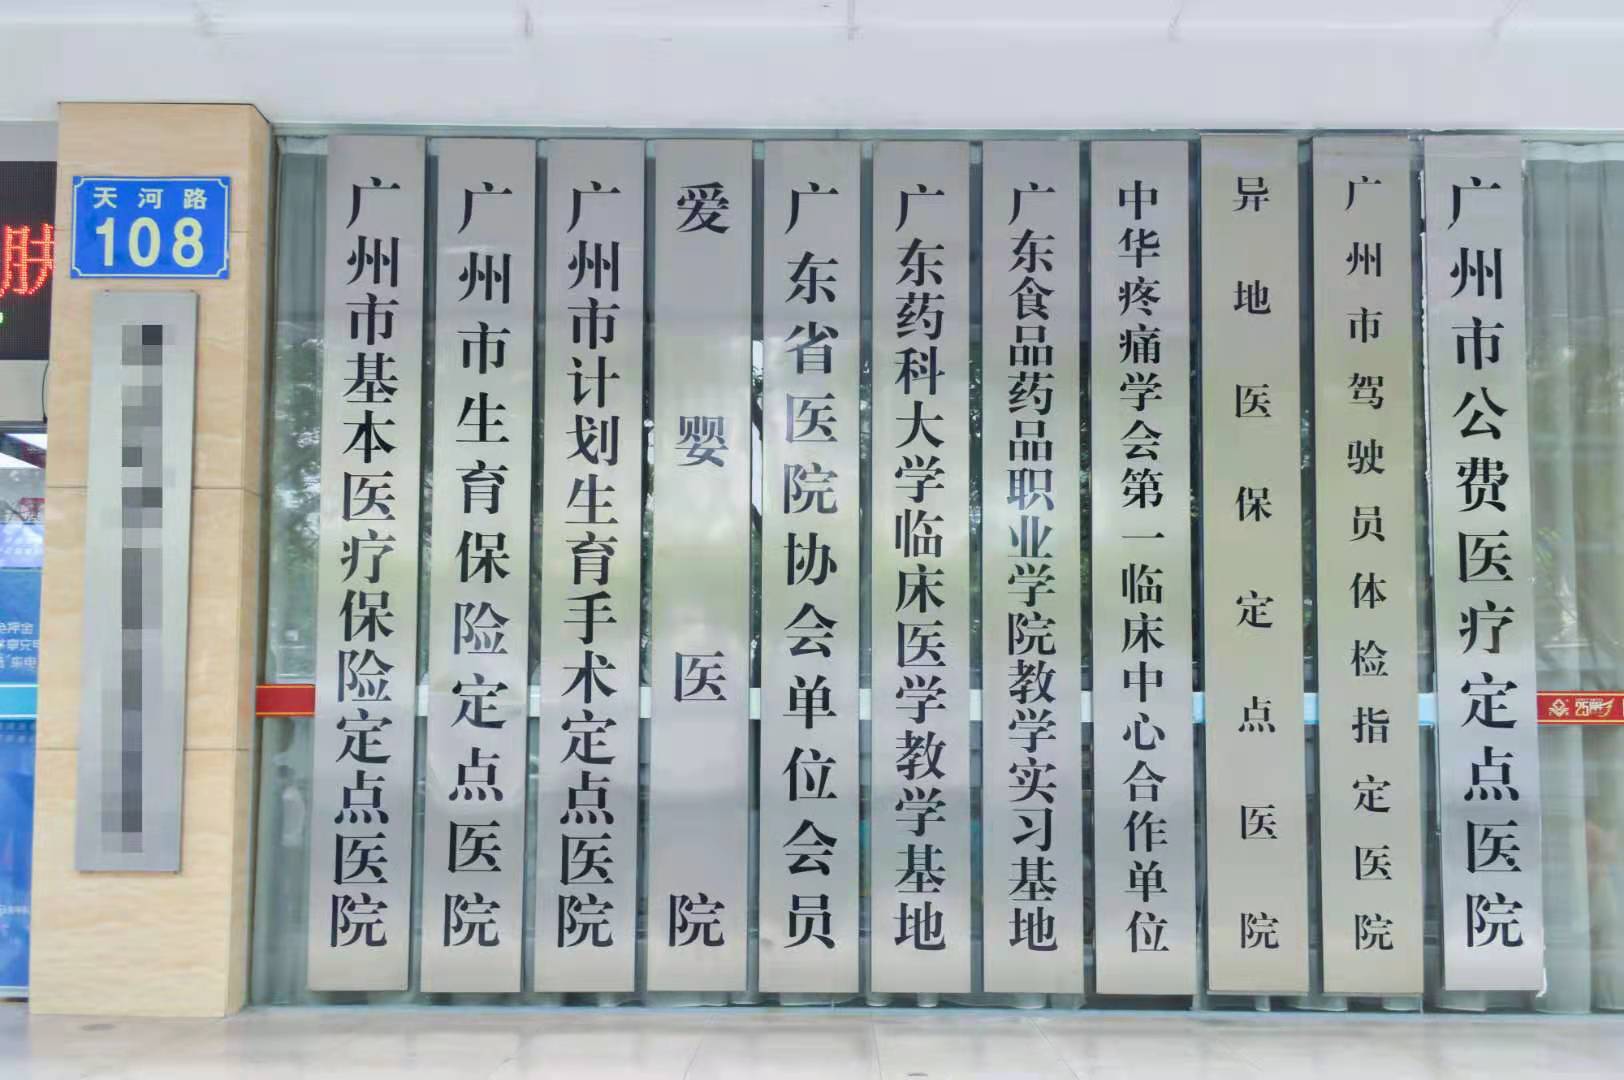 天河路
108
肤
广州市基本医疗保险定点医院
广州市生育保险定点医院
广州市计划生育手术定点医院
爱婴医院
广东省医院协会单位会员
广东药科大学临床医学教学基地
广东食品药品职业学院教学实习基地
中华疼痛学会第一临床中心合作单位
异地医保定点医院
广州市驾驶员体检指定医院
广州市公费医疗定点医院